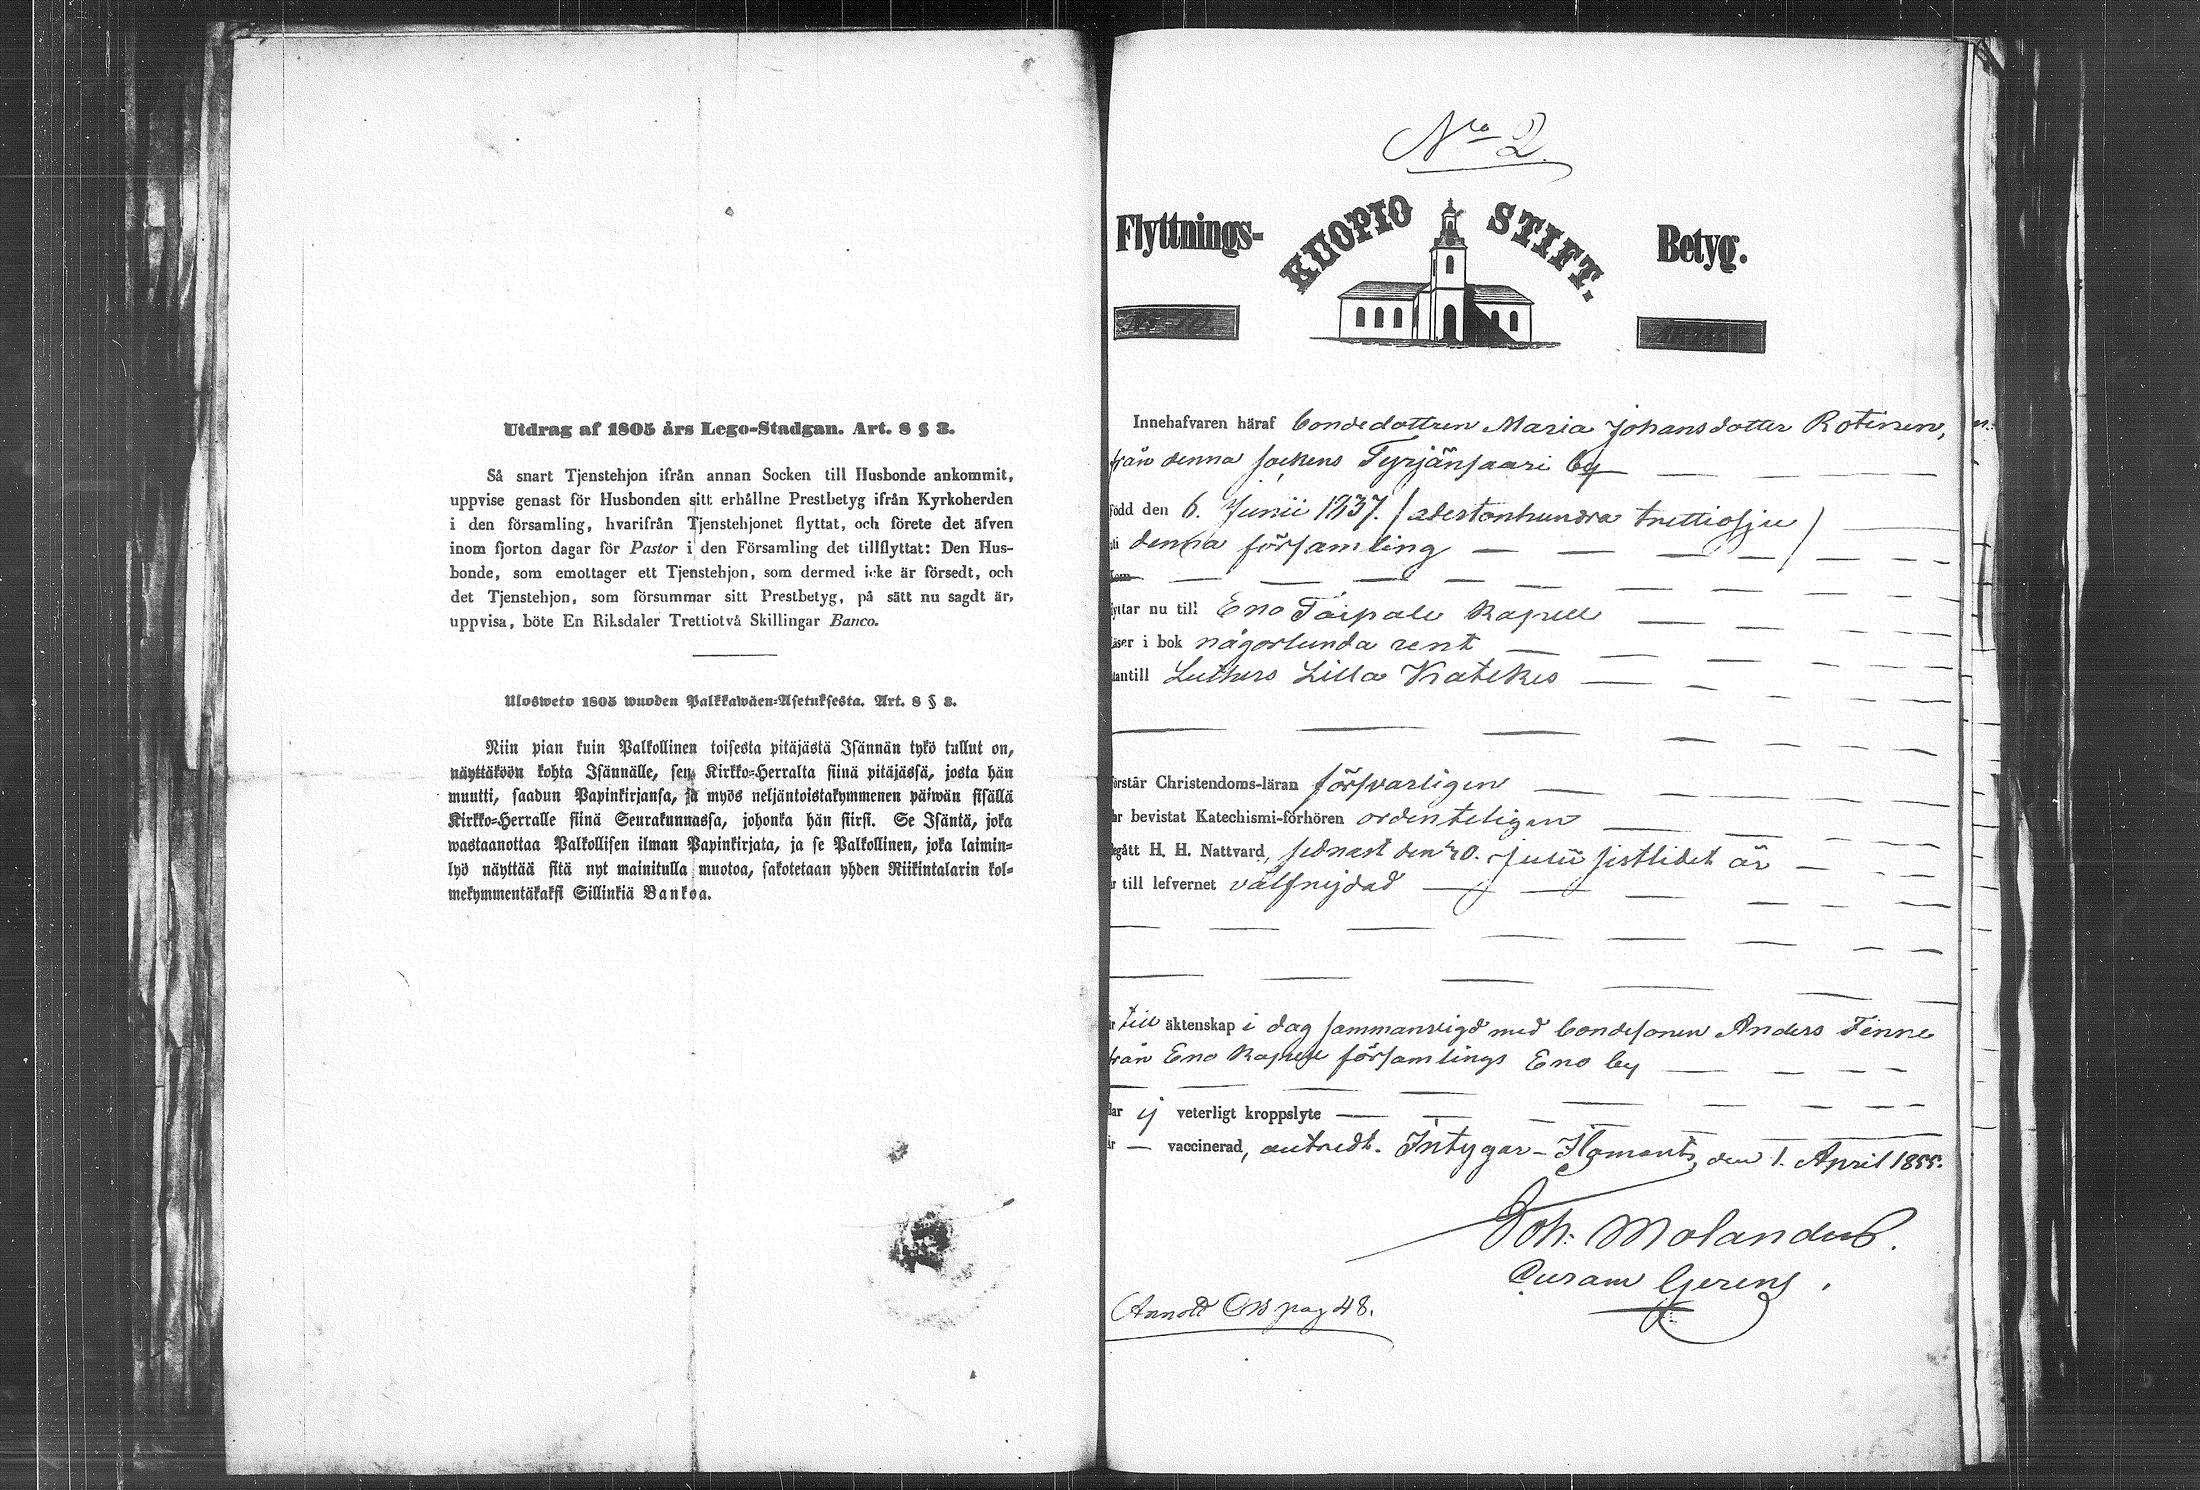 Utdrag af 1805 års Lego-Stadgan. Art. 8 § 3.
Så snart Tjenstehjon ifrån annan Socken till Husbonde ankommit,
uppvise genast för Husbonden sitt erhållne Prestbetyg ifrån Kyrkoherden
i den församling, hvarifrån Tjenstehjonet flyttat, och förete det äfven
inom fjorton dagar för Pastor i den Församling det tillflyttat: Den Hus-
bonde, som emottager ett Tjenstehjon, som dermed icke är försedt, och
det Tjenstehjon, som försummar sitt Prestbetyg, på sätt nu sagdt är,
uppvisa, böte En Riksdaler Trettiotvå Skillingar Banco.
Ulosweto 1805 wuoden Palkkawäen-Asetuksesta. Art. 8 § 3.
Niin pian kuin Palkollinen toisesta pitäjästä Isännän tykö tullut on,
näyttäköön kohta Isännälle, sen Kirkko-Herralta siinä pitäjässä, josta hän
muutti, saadun Papinkirjansa, ja myös neljäntoistakymmenen päiwän sisällä
Kirkko-Herralle siinä Seurakunnassa, johonka hän siirsi. Se Isäntä, joka
wastaanottaa Palkollisen ilman Papinkirjata, ja se Palkollinen, joka laimin-
lyö näyttää sitä nyt mainitulla muotoa, sakotetaan yhden Riikintalarin kol-
mekymmentäkaksi Sillinkiä Bankoa.
No 2.
Flyttnings- KUOPIO STIFT. Betyg.
Innehafvaren häraf bondedottren Maria Johansdotter Rotinen,
från denna sockens Tyrjänsaari by
född den 6. Junii 1837. / adertonhundra trettiosju /
i denna församling
Kom
flyttar nu till Eno Taipale Kapell
läser i bok någorlunda rent
utantill Luthers Lilla Katekes
förstår Christendoms-läran försvarligen
har bevistat Katechismi-förhören ordenteligen
begått H. H. Nattvard, sednast den 20. Julii sistlidet år
är till lefvernet välfrejdad
är till äktenskap i dag sammanvigd med bondesonen Anders Tinne
från Eno Kapell församlings Eno by
har ej veterligt kroppslyte
är — vaccinerad, attest. Intygar - Ilomants den 1. April 1855.
Joh: Molander.
Curam Gerens.
Annot pag 48.